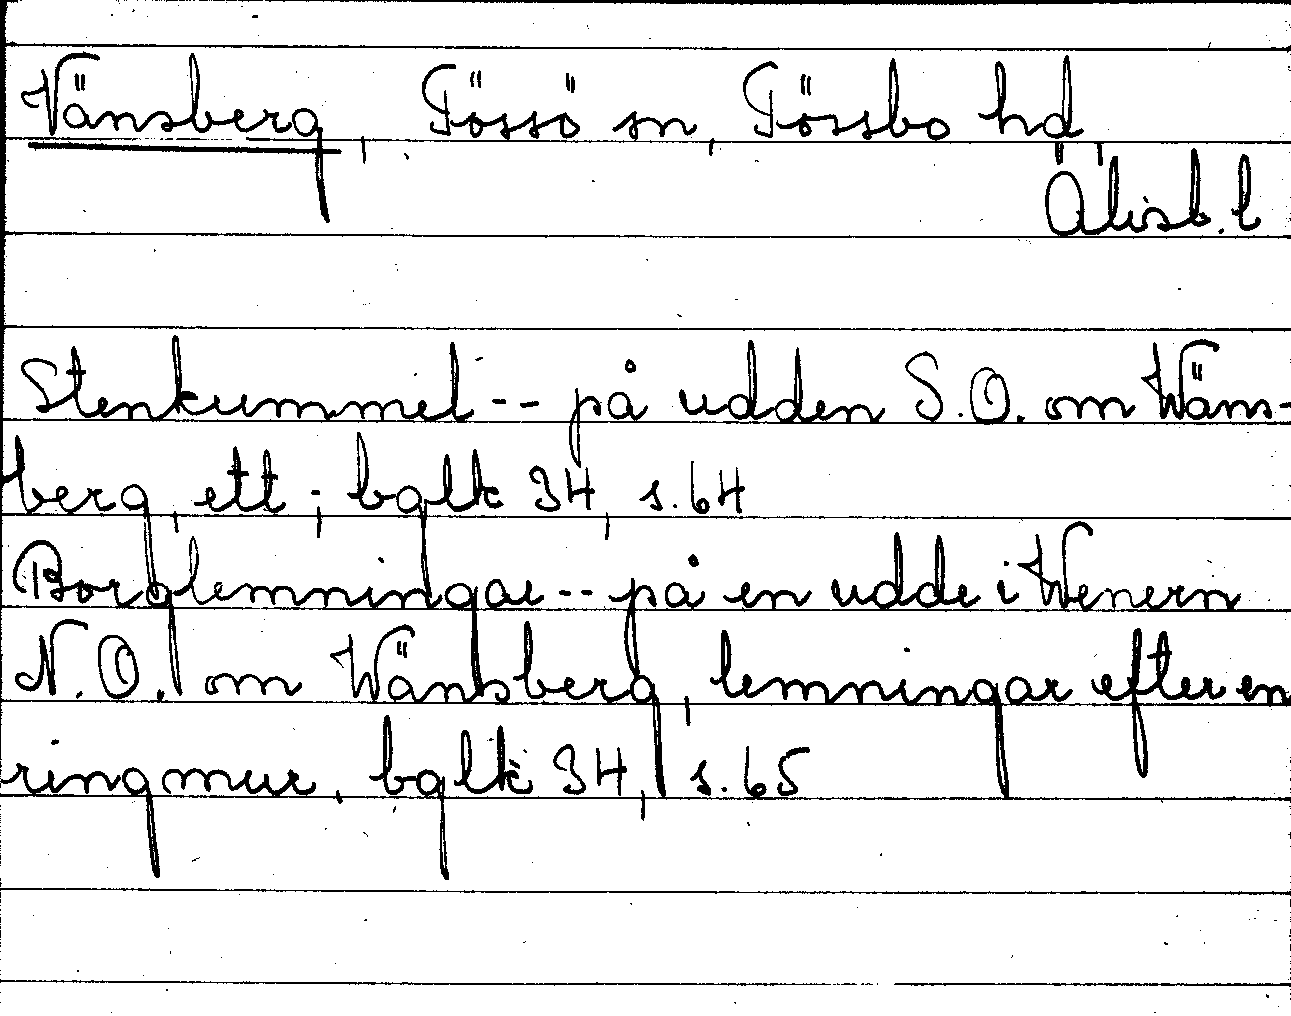 Vänsberg, Tössö sn, Tössbo hd,
Älvsb. l
Stenkummel -- på udden S.O. om Wäns-
berg, ett; bglk 34, s. 64
Borglemningar -- på en udde i Wenern
N.O. om Wänsberg, lemningar efter en
ringmur, bglk 34, s. 65